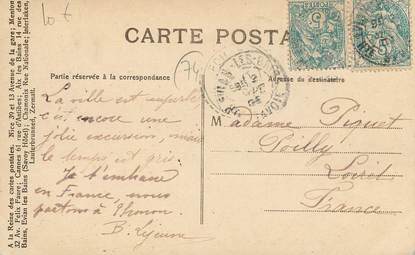 10 t
CARTE POSTALE
74
Partie réservée à la correspondance
Adresse du destinataire
La ville est superbe
c'est encore une
jolie excursion, mais
le temps est gris.
Je t'embrasse
en France, nous
partons à Thonon.
B. Lejeune
M adame Piquet
Poilly
Loiret
France
A la Reine des cartes postales. Nice, 29 et 13 Avenue de la gare; Menton
32 Av. Felix Faure; Cannes 61 rue d'Antibes; Aix les Bains 14 rue des
Bains, Evian les Bains (Savoy Hôtel); Chamonix Rue Nationale; Interlaken,
Lauterbrunnen, Zermatt.